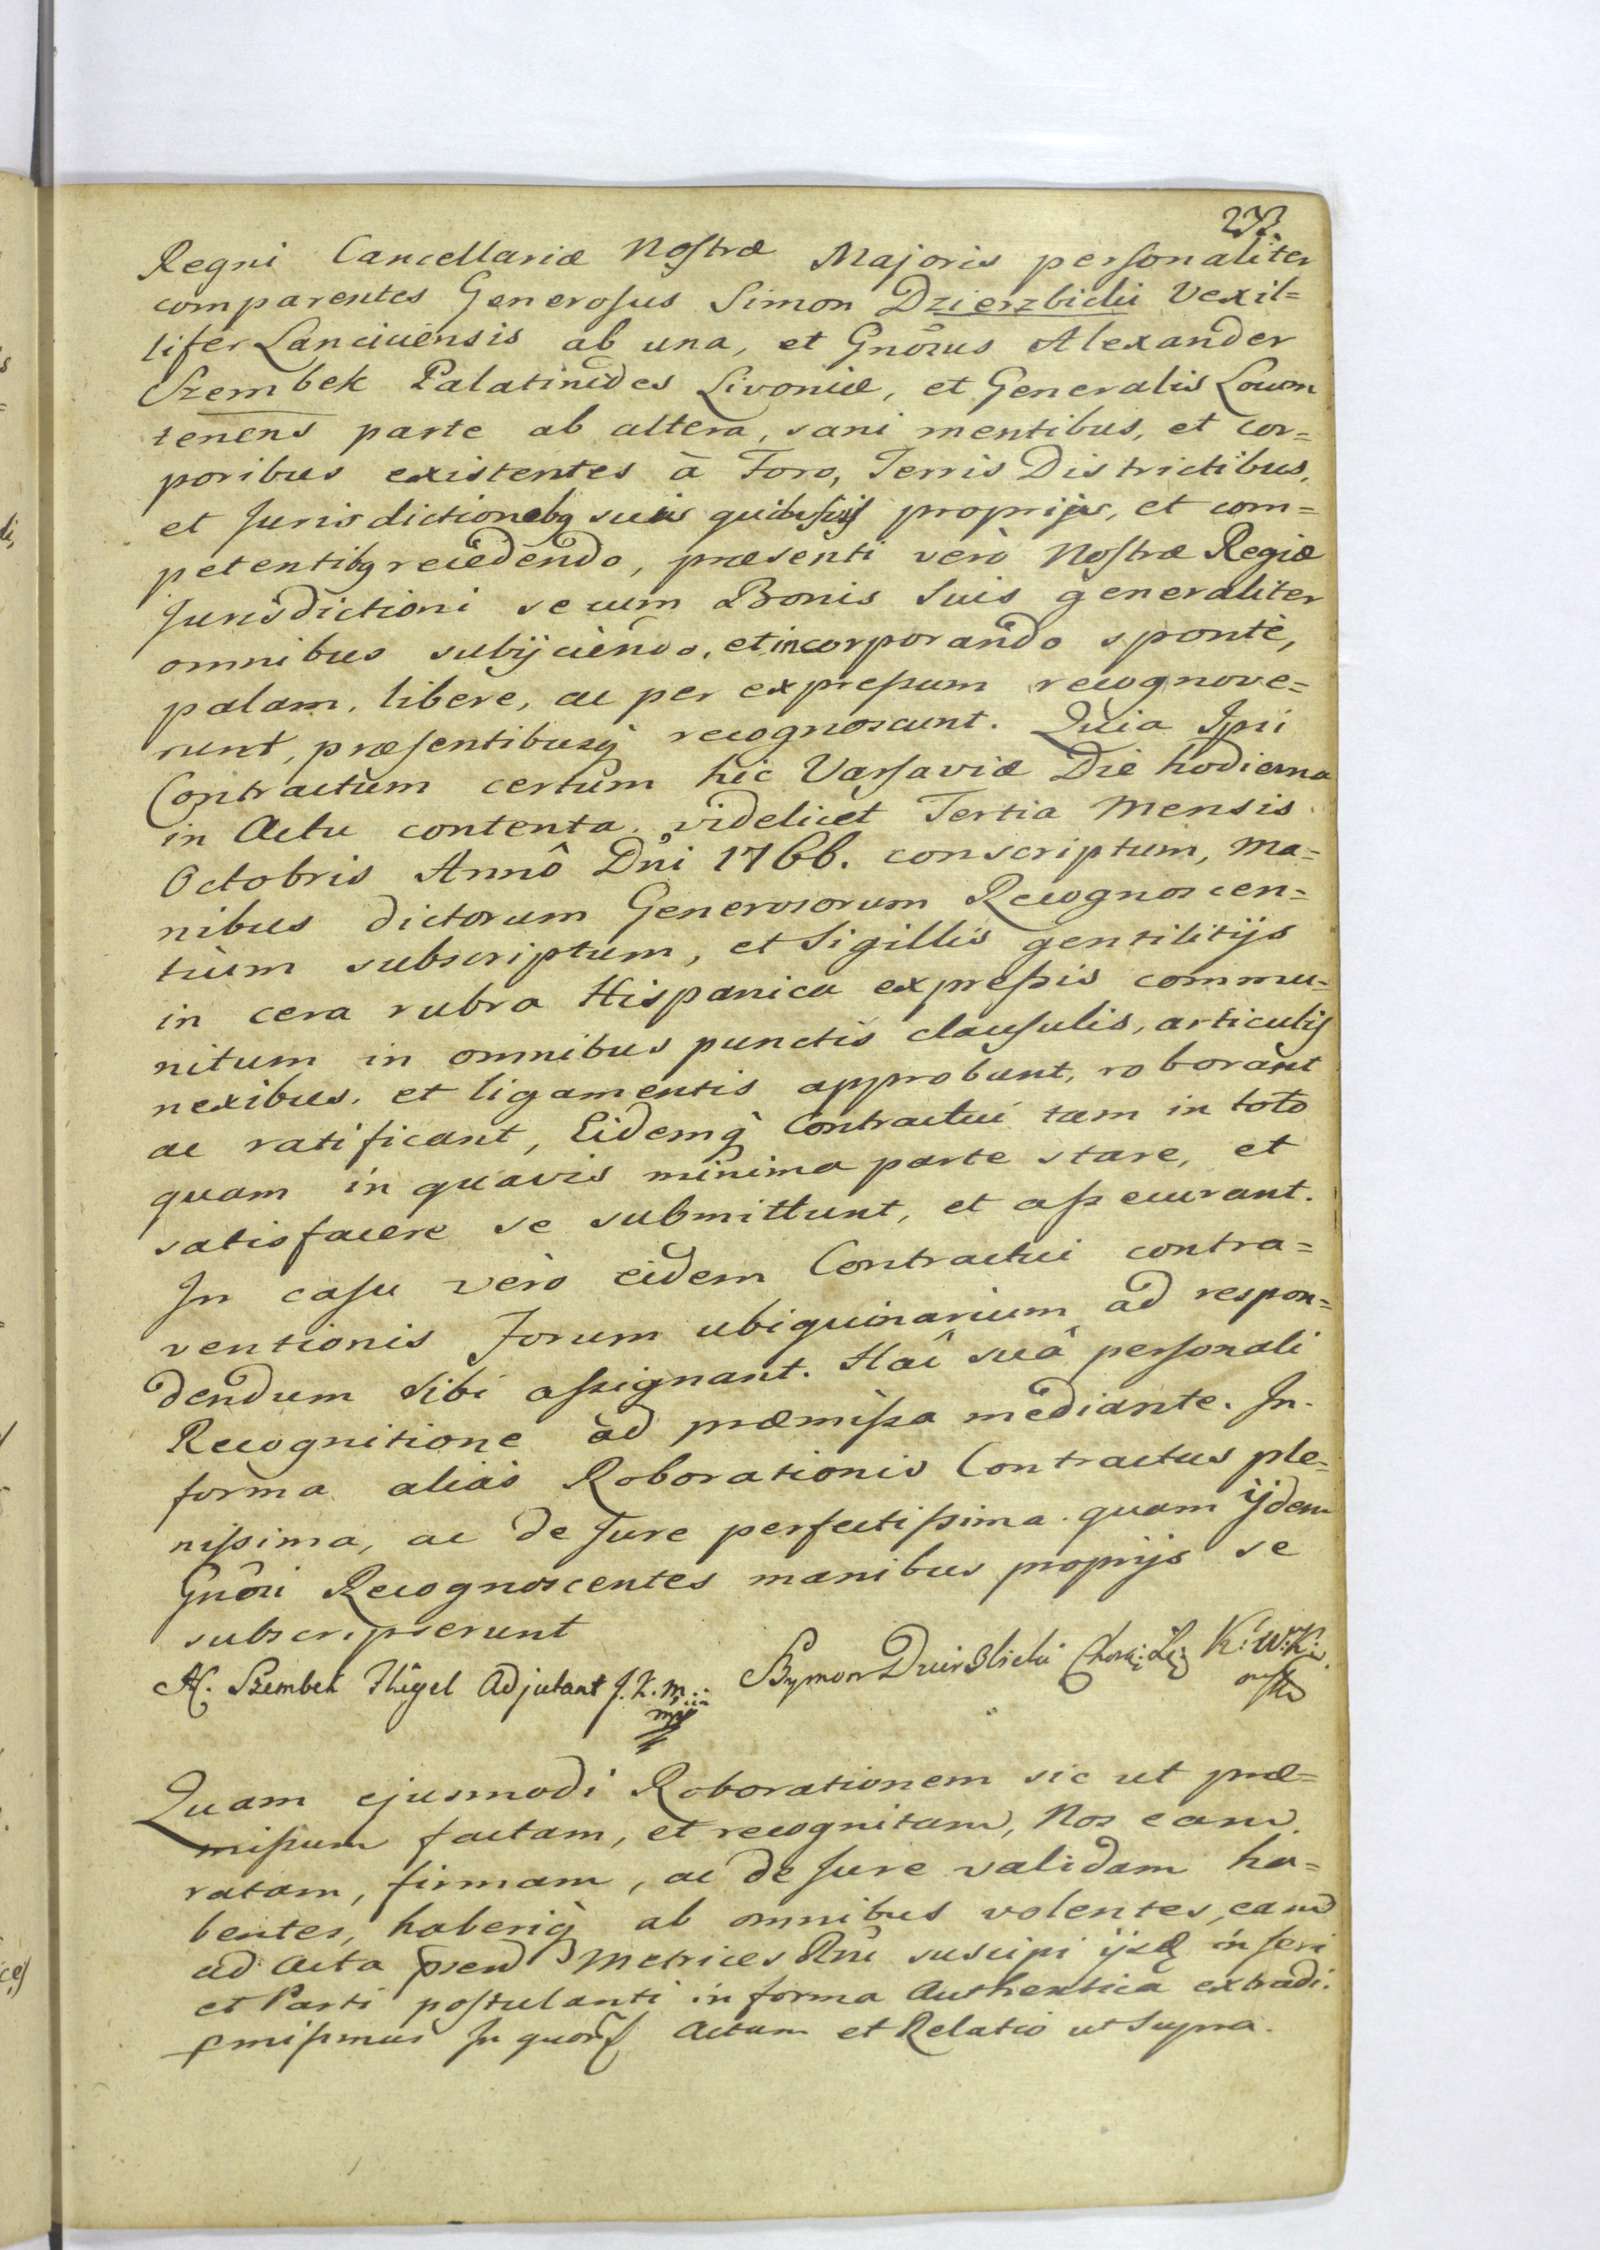 273.
Regni Cancellariæ Nostræ Majoris personaliter
comparentes Generosus Simon Dzierzbicki Vexil=
lifer Lanciciensis ab una, et Gnõsus Alexander
Szembek Palatinides Livoniæ, et Generalis Locum
tenens parte ab altera, sani mentibus, et cor=
poribus existentes à Foro, Terris Districtibus,
et Jurisdictionebq suis quibusvis proprijs, et com=
petentibq recedendo, præsenti verò Nostræ Regiæ
Jurisdictioni se cum Bonis suis generaliter
omnibus subijciendo, et incorporando spontè,
palam, libere, ac per expressum recognove=
runt, præsentibusq̀ recognoscunt. Quia Ipsi
Contractum certum hic Varsaviæ Die hodierna
in Actu contenta, videlicet Tertia Mensis
Octobris Annô Dñi 1766. conscriptum, Ma=
nibus dictorum Generosorum Recognoscen=
tium subscriptum, et Sigillis gentilitijs
in cera rubra Hispanica expressis commu=
nitum in omnibus punctis clausulis, articulis
nexibus, et ligamentis approbant, roborant
ac ratificant, Eidemq̀ Contractui tam in toto
quam in quavis minima parte stare, et
satisfacere se submittunt, et assecurant.
In casu verò eidem Contractui contra=
ventionis Forum ubiquinarium ad respon=
dendum sibi assignant. Hac suâ personali
Recognitione ad præmissa mediante. In
forma alias Roborationis Contractus ple=
nissima, ac de Jure perfectissima quam ijdem
Gnõsi Recognoscentes manibus proprijs se
subscripserunt
A. Szembek Fligel Adjutant J. K. M. mp
Szymon Dzierzbicki Chorą: Łę: K: W: K:
Quam ejusmodi Roborationem sic ut præ=
missum factam, et recognitam, Nos eam
ratam, firmam, ac de Jure validam ha=
bentes, haberiq̀ ab omnibus volentes, eam
ad Acta præn Metrices Rñi suscipi ijsq inseri
et Parti postulanti in forma Authentica extradi
pmisimus In quorũ Actum et Relatio ut Supra.